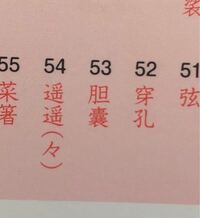 51 弦
52 穿孔
53 胆囊
54 遥遥(々)
55 菜箸